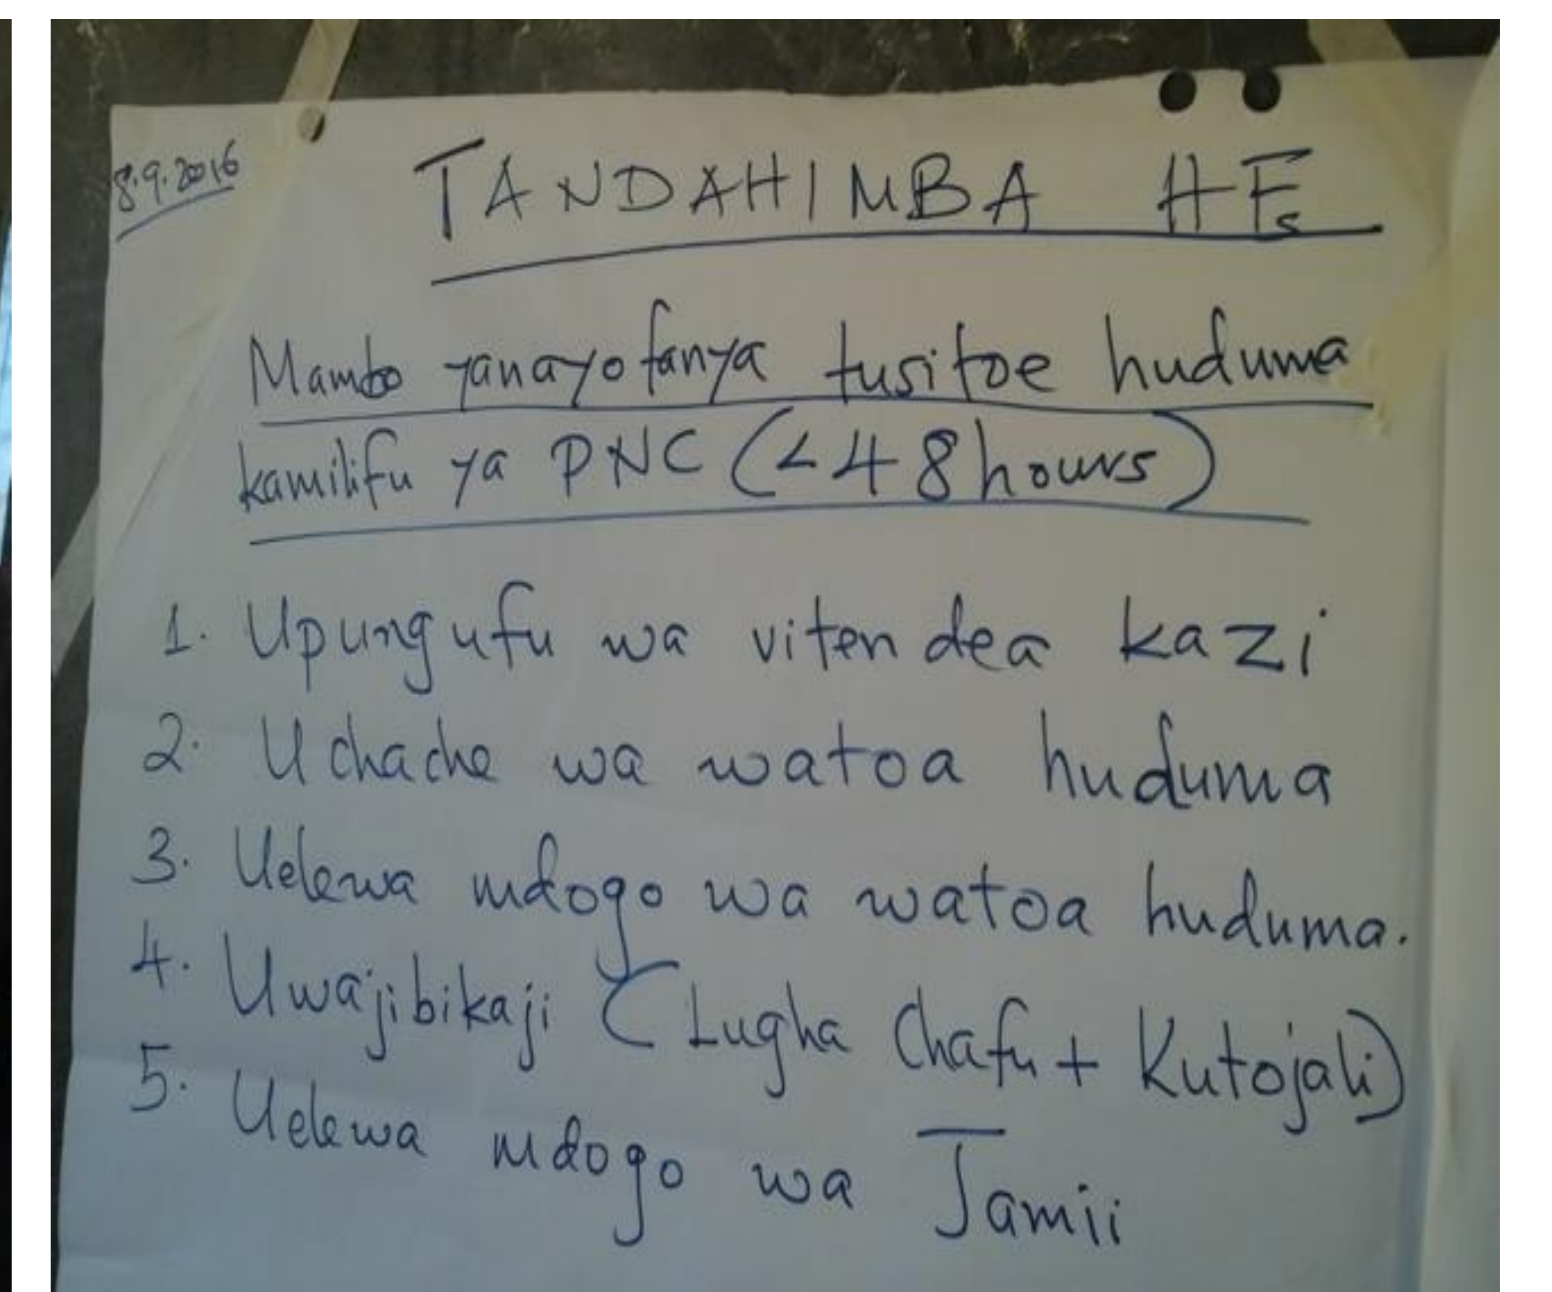 8.9.2016
TANDAHIMBA HFs
Mambo yanayofanya tusitoe huduma
kamilifu ya PNC (<48hours)
1. Upungufu wa vitendea kazi
2. Uchache wa watoa huduma
3. Uelewa mdogo wa watoa huduma.
4. Uwajibikaji (Lugha Chafu + Kutojali)
5. Uelewa mdogo wa Jamii